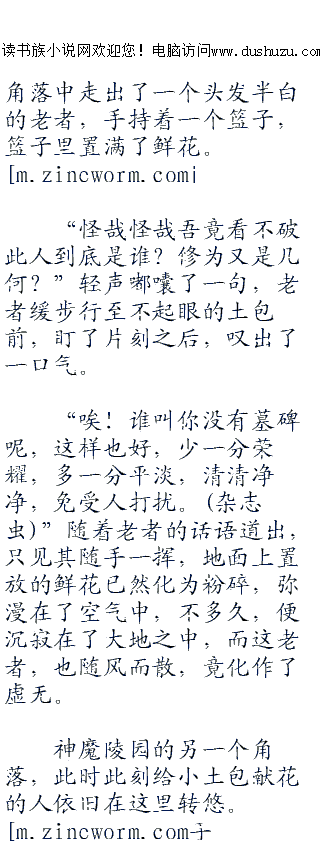 读书族小说网欢迎您！电脑访问www.dushuzu.com
角落中走出了一个头发半白
的老者，手持着一个篮子，
篮子里置满了鲜花。
[m.zincworm.com|
“怪哉怪哉吾竟看不破
此人到底是谁？修为又是几
何？”轻声嘟囔了一句，老
者缓步行至不起眼的土包
前，盯了片刻之后，叹出了
一口气。
“唉！谁叫你没有墓碑
呢，这样也好，少一分荣
耀，多一分平淡，清清净
净，免受人打扰。(杂志
虫)”随着老者的话语道出，
只见其随手一挥，地面上置
放的鲜花已然化为粉碎，弥
漫在了空气中，不多久，便
沉寂在了大地之中，而这老
者，也随风而散，竟化作了
虚无。
神魔陵园的另一个角
落，此时此刻给小土包献花
的人依旧在这里转悠。
[m.zincworm.com于